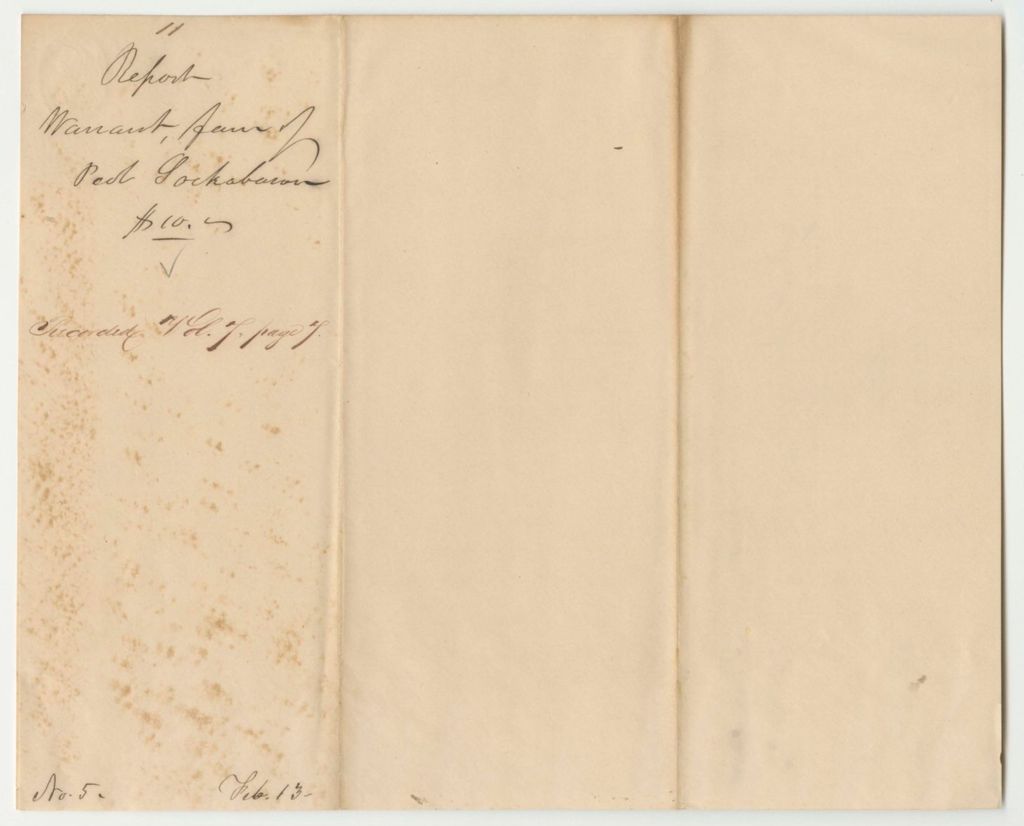 11
Report
Warrant, favr of
Peol Sockabason
$10.
Recorded Vol. 7. page 7.
No. 5. Feb. 13-